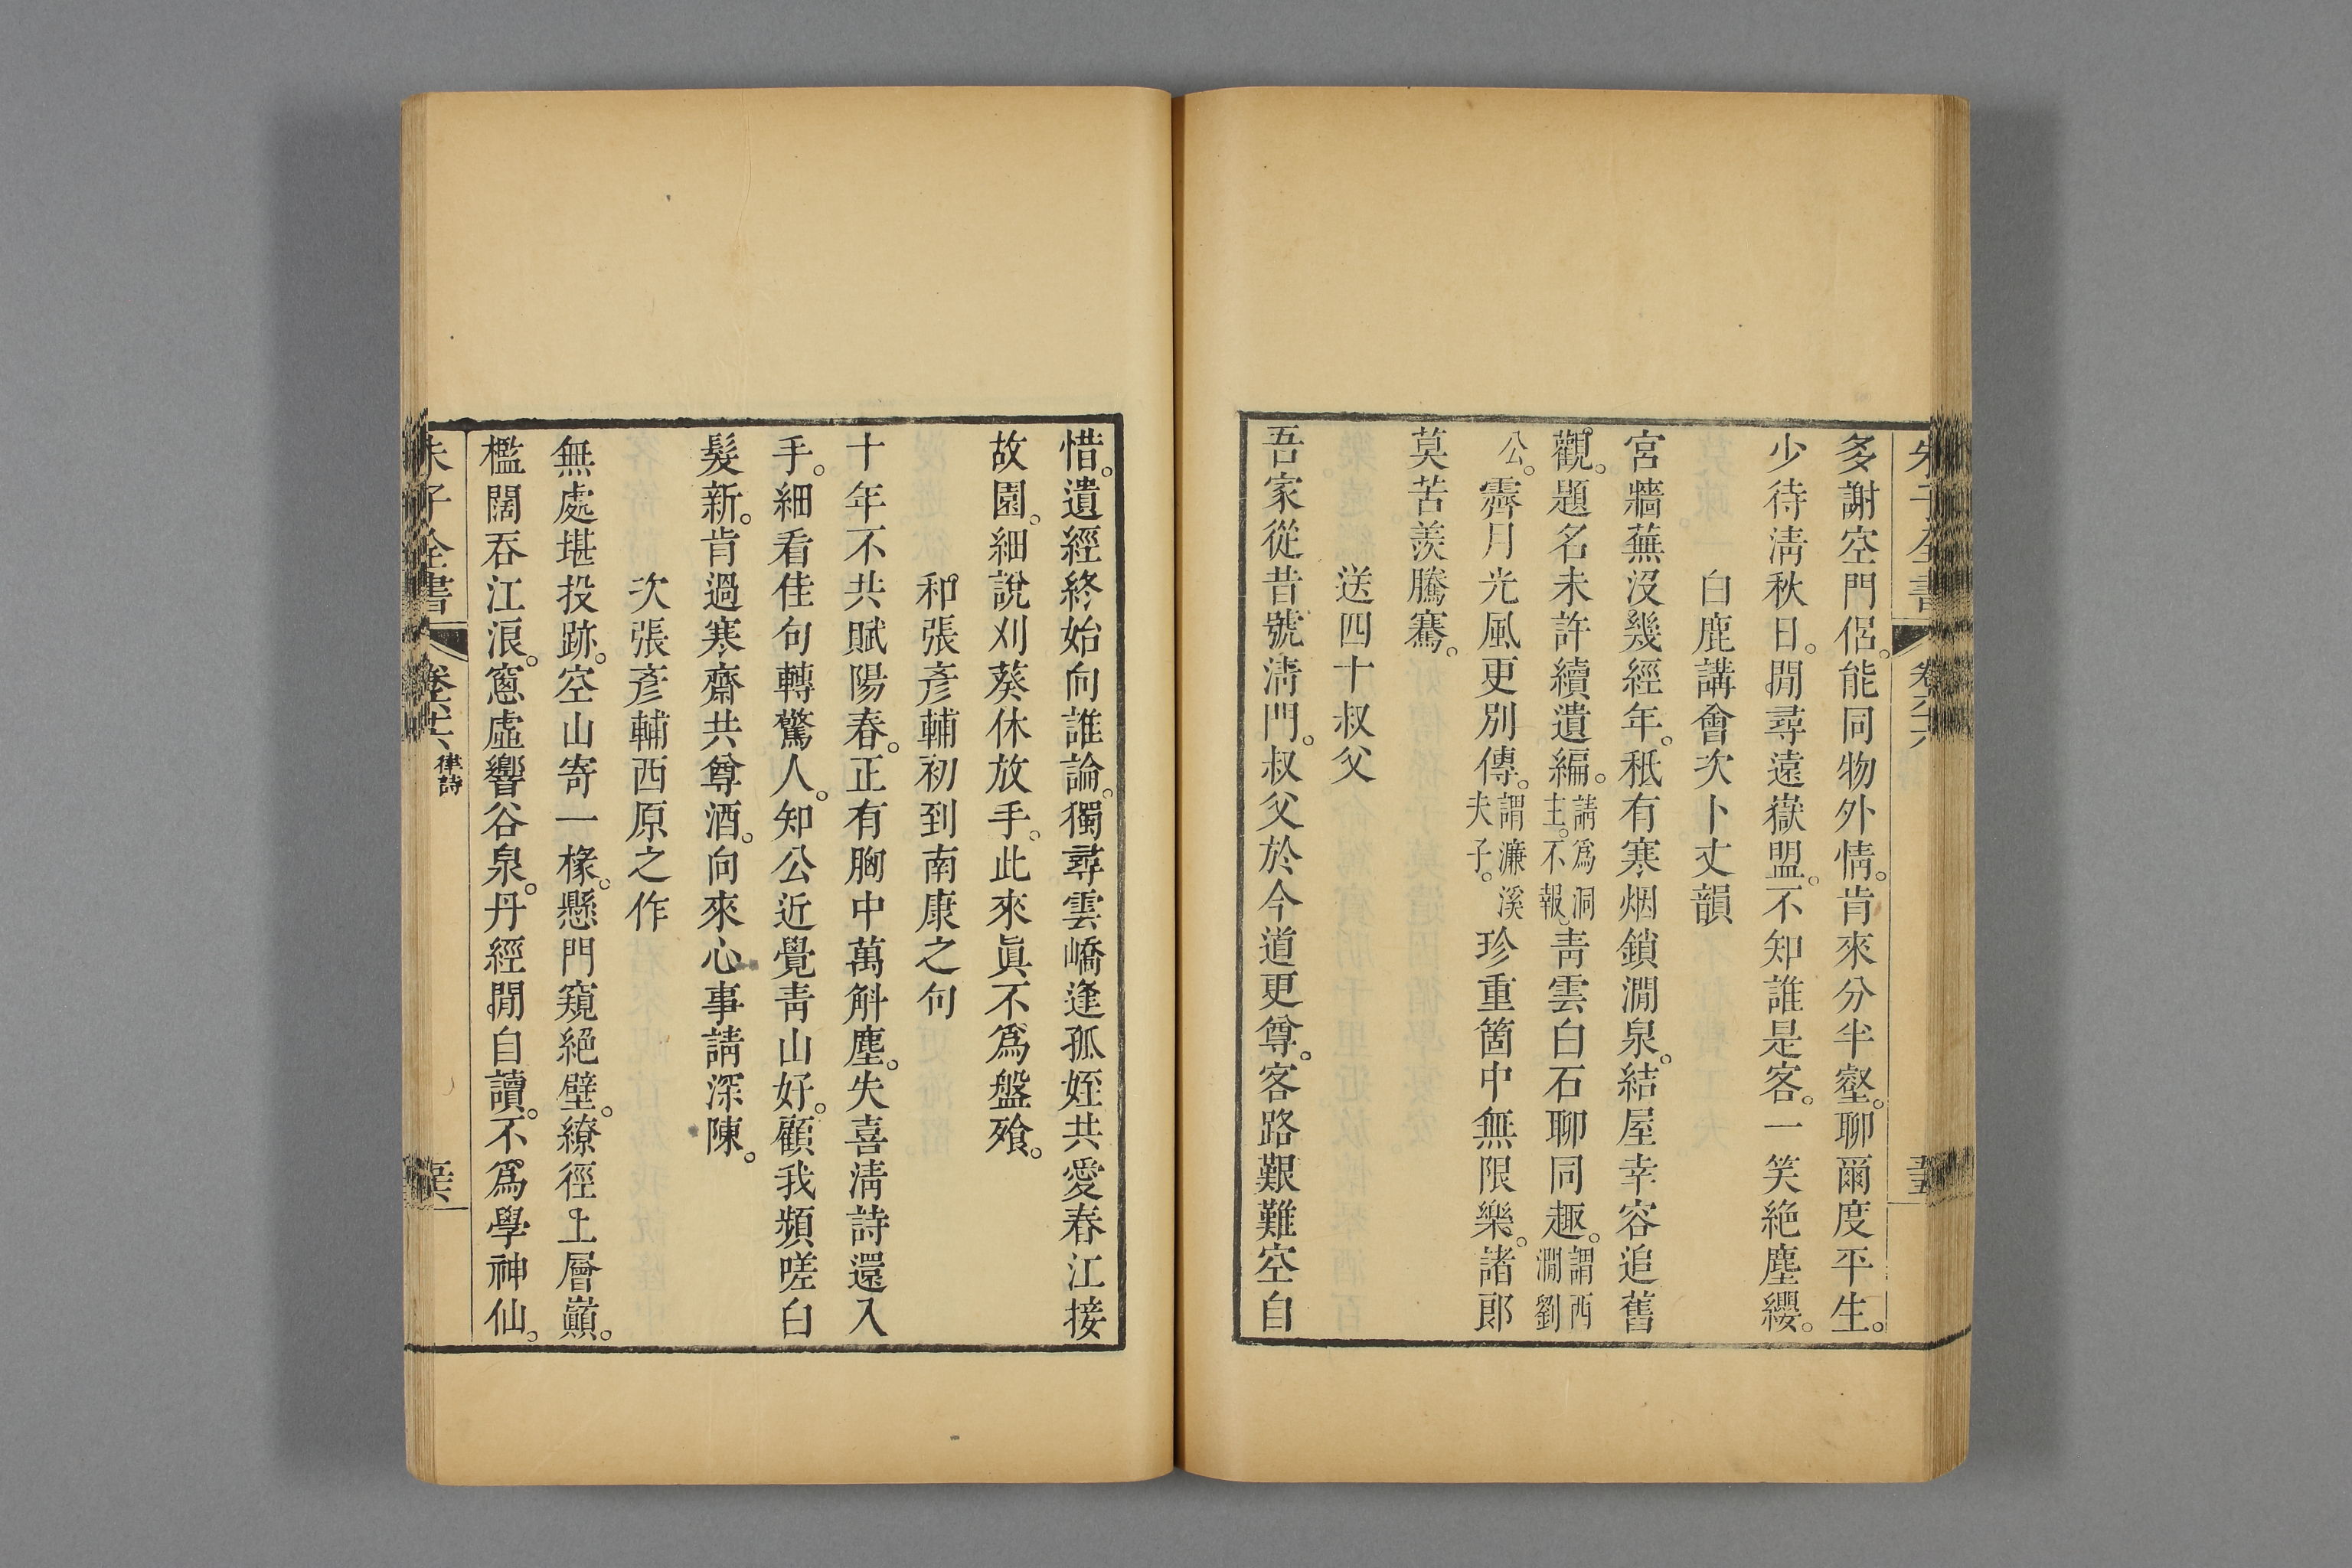 多謝空門侶。能同物外情。肯來分半壑。聊爾度平生。
少待淸秋日。閒尋遠嶽盟。不知誰是客。一笑絶塵纓。
白鹿講會次卜丈韻
宮牆蕪沒幾經年。秪有寒烟鎖澗泉。結屋幸容追舊
觀。題名未許續遺編。請爲洞主。不報。靑雲白石聊同趣。謂西澗劉
公。霽月光風更別傳。謂濂溪夫子。珍重箇中無限樂。諸郎
莫苦羨騰騫。
送四十叔父
吾家從昔號淸門。叔父於今道更尊。客路艱難空自
惜。遺經終始向誰論。獨尋雲嶠逢孤姪共愛春江接
故園。細說刈葵休放手。此來眞不爲盤飱。
和張彥輔初到南康之句
十年不共賦陽春。正有胸中萬斛塵。失喜淸詩還入
手。細看佳句轉驚人。知公近覺靑山好。顧我頻嗟白
髮新。肯過寒齋共尊酒。向來心事請深陳。
次張彥輔西原之作
無處堪投跡。空山寄一椽。懸門窺絕壁。繚徑上層巔。
檻闊吞江浪。窻虛響谷泉。丹經閒自讀。不爲學神仙。
朱子全書
卷六十六
律詩